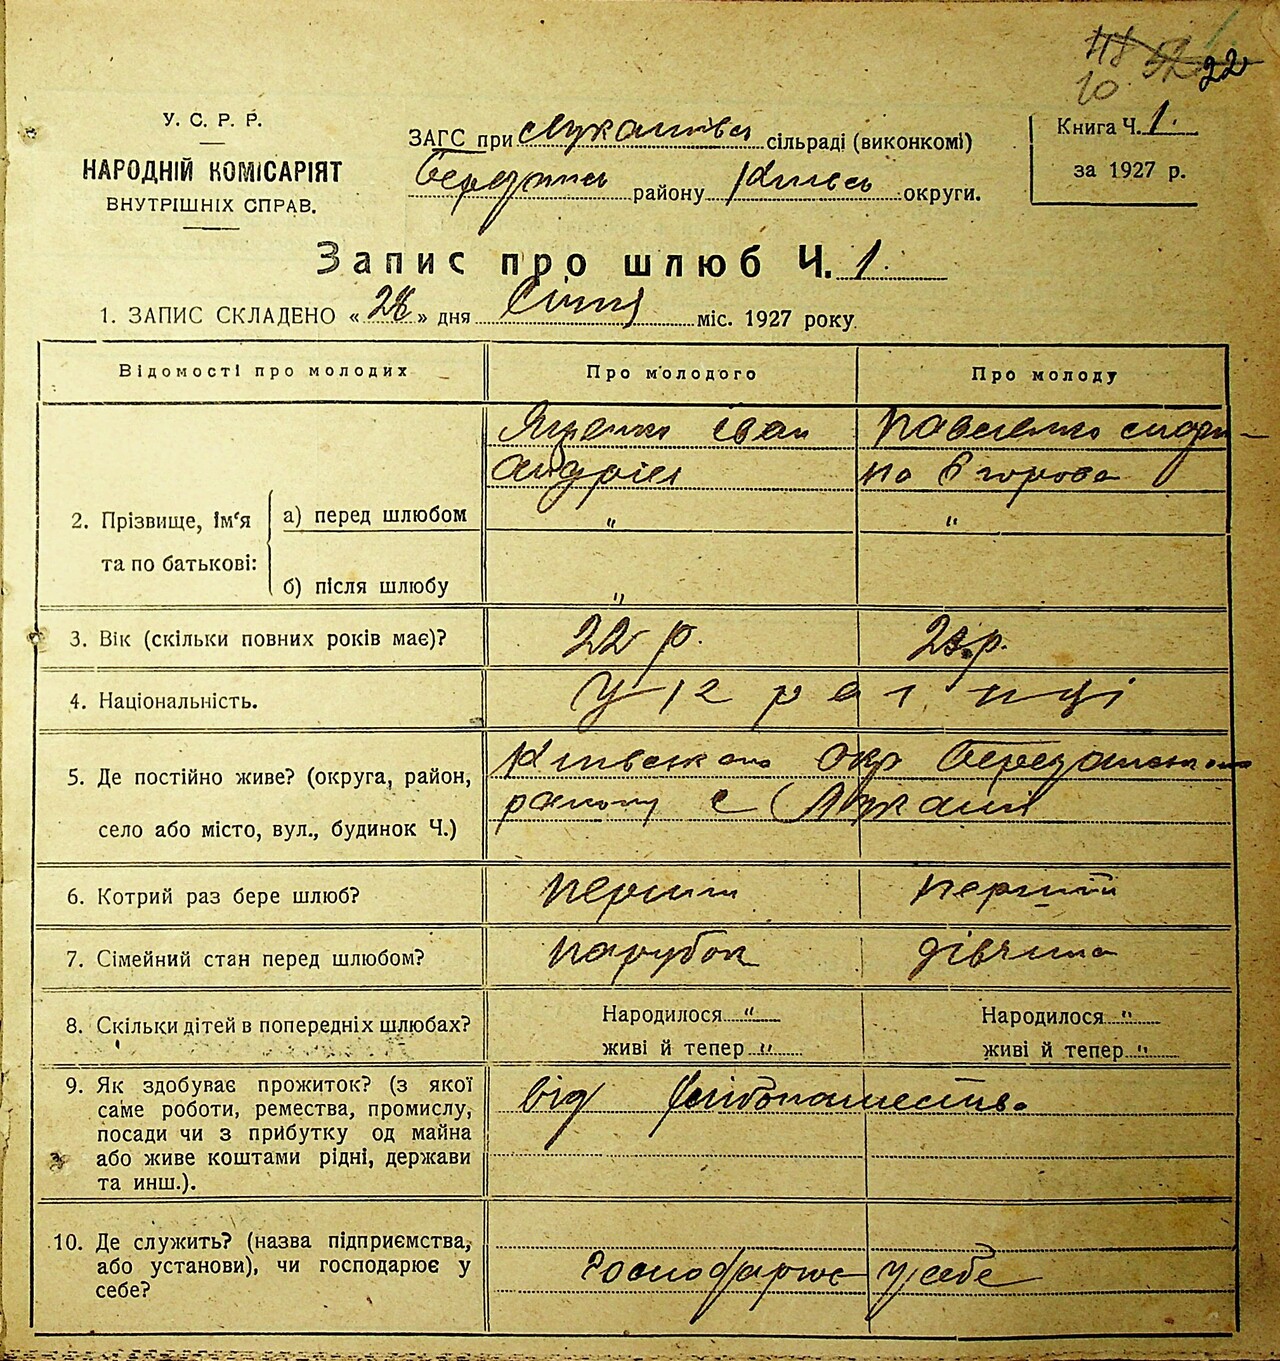 22
10
У. С. Р. Р.
НАРОДНІЙ КОМІСАРІЯТ
ВНУТРІШНІХ СПРАВ.
ЗАГС при сільраді (виконкомі)
району округи.
Книга Ч. 1.
за 1927 р.
Запис про шлюб Ч. 1.
1. ЗАПИС СКЛАДЕНО « 28 » дня Січня міс. 1927 року
Відомості про молодих Про молодого Про молоду
Яценко Іван
Андрієв
2. Прізвище, ім‘я та по батькові:
а) перед шлюбом " "
б) після шлюбу "
3. Вік (скільки повних років має)? 22 р. р.
4. Національність. Українці
5. Де постійно живе? (округа, район, село або місто, вул., будинок Ч.)
Окр
району с
6. Котрий раз бере шлюб? перший перший
7. Сімейний стан перед шлюбом? парубок дівчина
8. Скільки дітей в попередніх шлюбах? Народилося " Народилося "
живі й тепер " живі й тепер "
9. Як здобуває прожиток? (з якої
саме роботи, ремества, промислу,
посади чи з прибутку од майна
або живе коштами рідні, держави
та инш.).
від хлібопашества
10. Де служить? (назва підприємства,
або установи), чи господарює у
себе?
господарює у себе